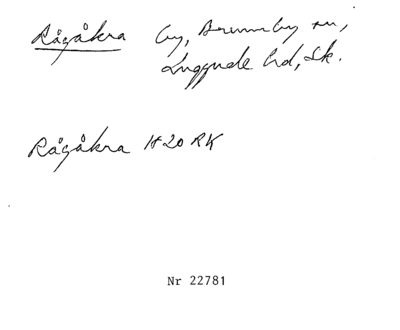 Rågåkra by, Brunnby sn,
Luggude hd, Sk.
Rågåkra H20 RK
Nr 22781